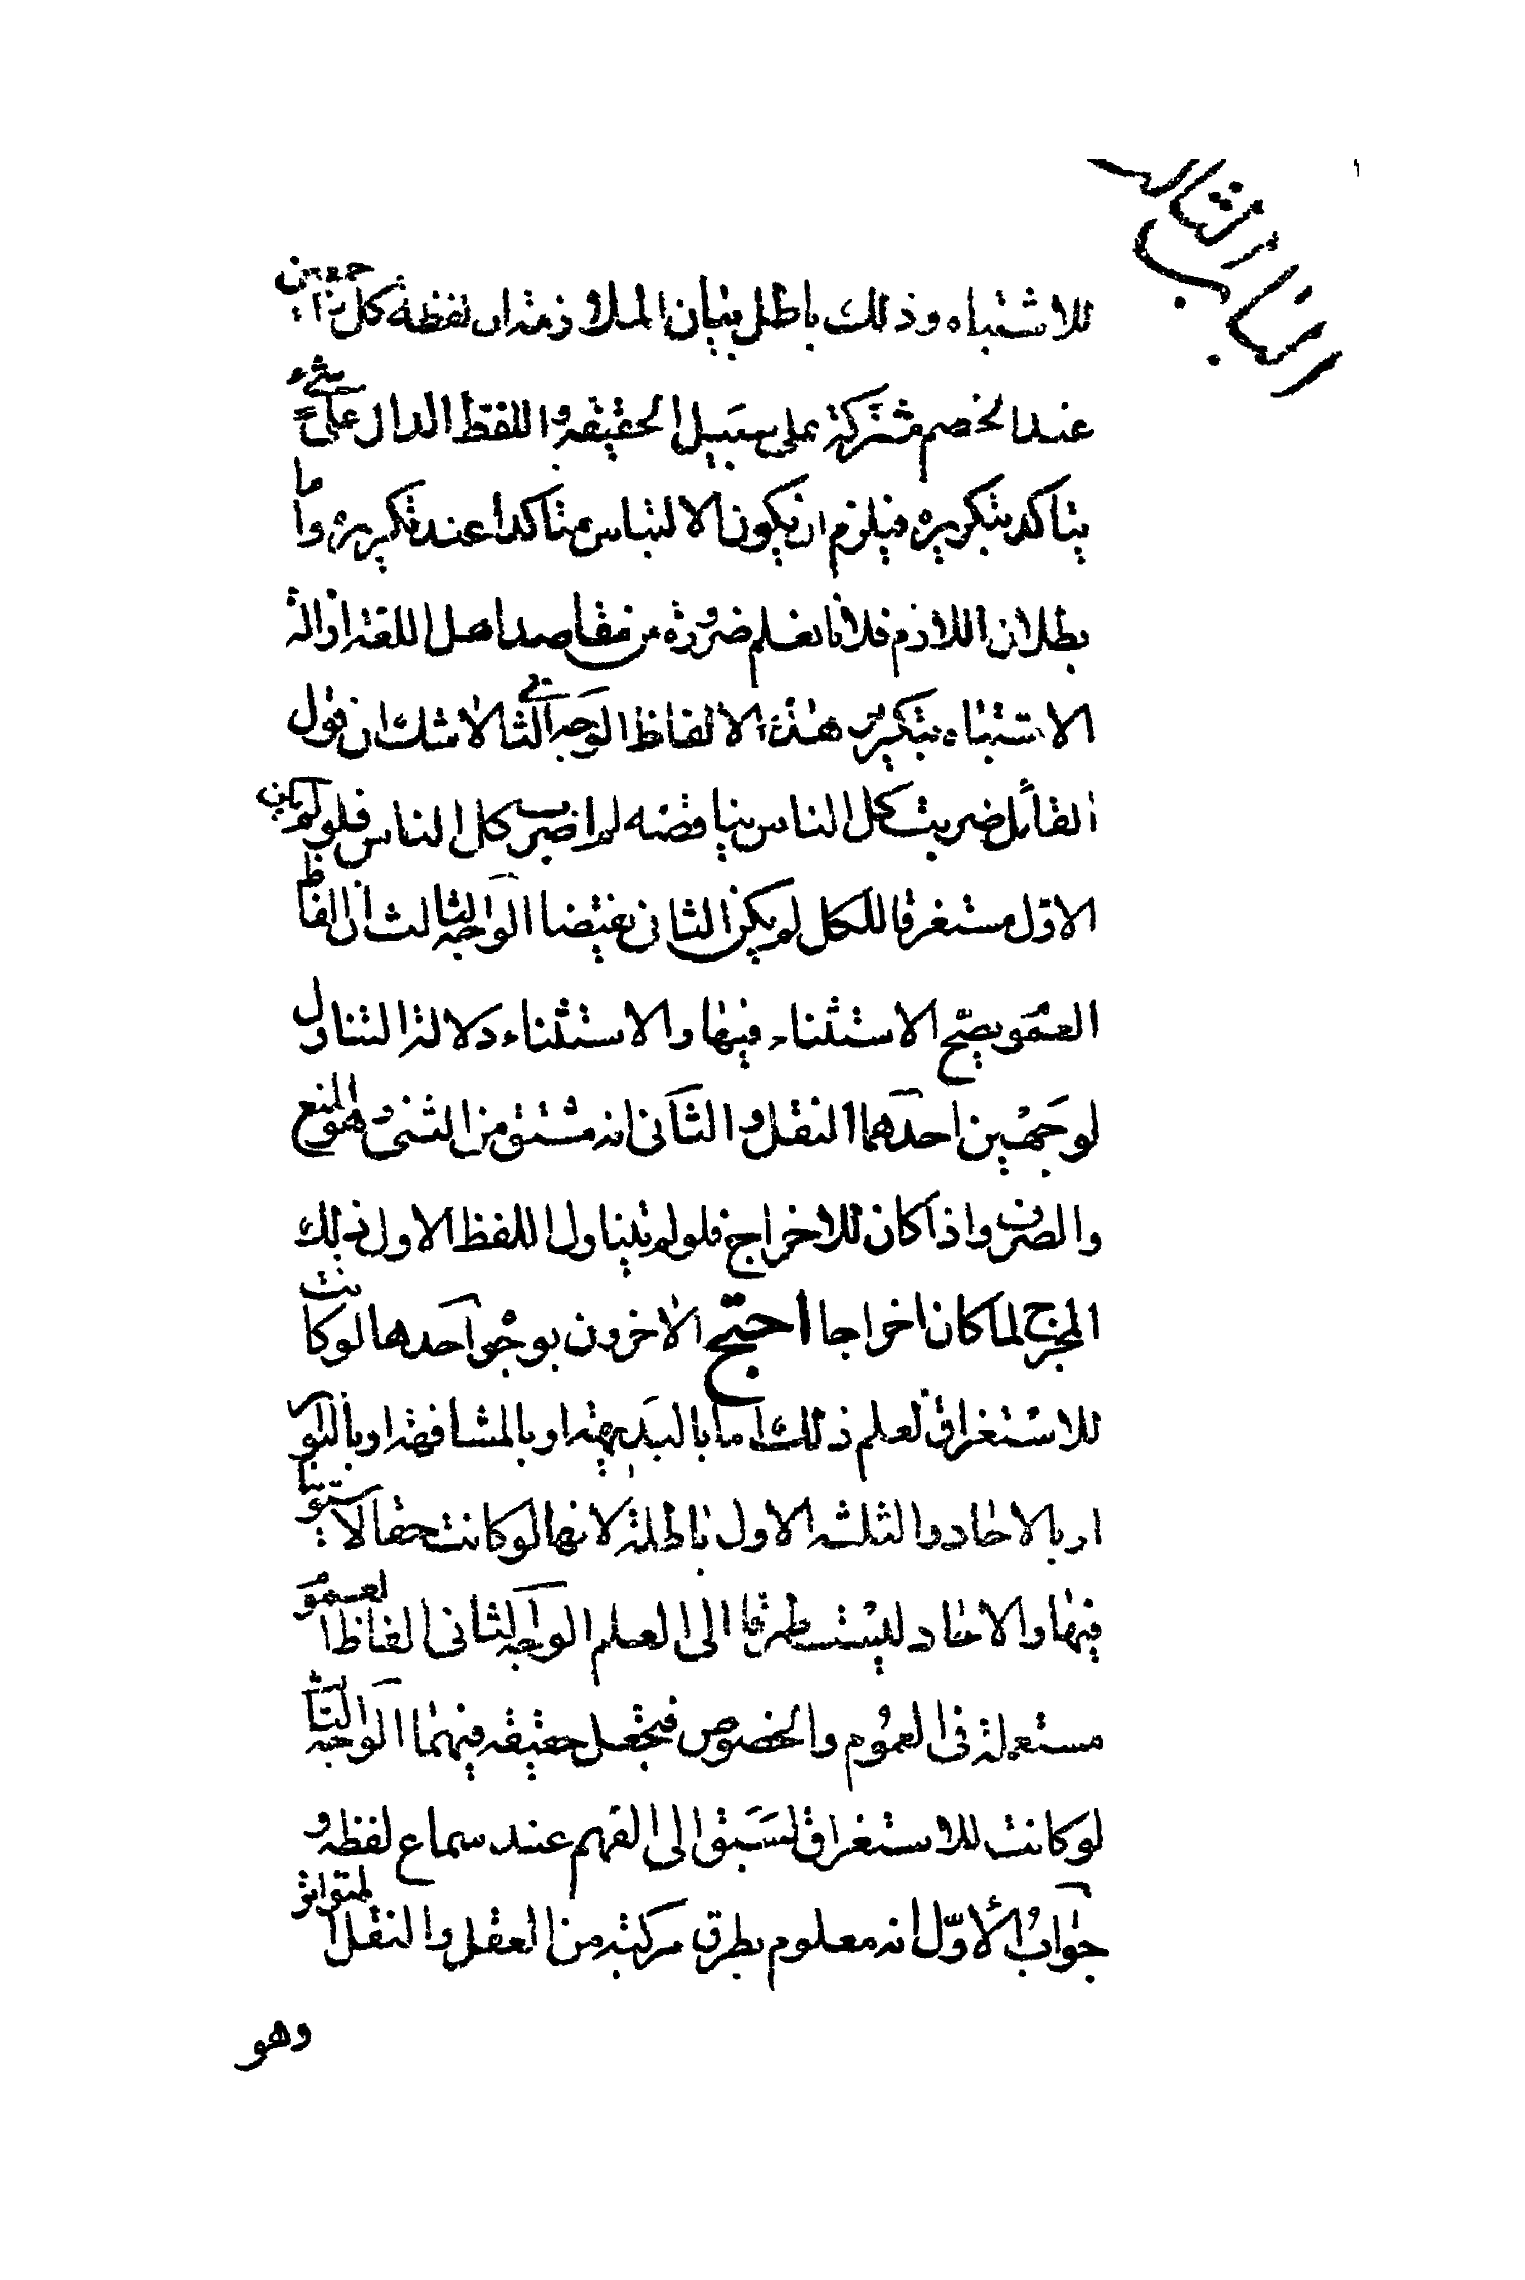 الباب الثالث
للاشتباه وذلك باطل بيان الملازمة ان لفظة كل واجمعين
عند الخصم مشتركة على سبيل الحقيقة واللفظ الدال على شيء
يتاكد بتكريره فيلزم ان يكون الالتباس متاكدا عند تكريره واما
بطلان اللازم فلانا نعلم ضرورة من مقاصد اهل اللغة ازالة
الاشتباه بتكرير هذه الالفاظ الوجه الثاني لا شك ان قول
القائل ضربت كل الناس يناقضه لم اضرب كل الناس فلو لم يكن
الاول مستغرقا للكل لم يكن الثاني نقيضا الوجه الثالث ان الفاظ
العموم يصح الاستثناء فيها والاستثناء دلالة التناول
لوجهين احدهما النقل والثاني انه مشتق من الثني وهو المنع
والصرف واذا كان للاخراج فلو لم يتناول اللفظ الاول ذلك
المخرج لما كان اخراجا احتج الاخرون بوجوه احدها لو كانت
للاستغراق لعلم ذلك اما بالبديهة او بالمشافهة او بالتواتر
او بالاحاد والثلثة الاول باطلة لانها لو كانت حقا لاستوينا
فيها والاحاد ليست طريقا الى العلم الوجه الثاني الفاظ العموم
مستعملة في العموم والخصوص فتجعل حقيقة فيهما الوجه الثالث
لو كانت للاستغراق لسبق الى الفهم عند سماع لفظه و
جواب الأوّل انه معلوم بطرق مركبة من العقل والنقل المتواتر
وهو